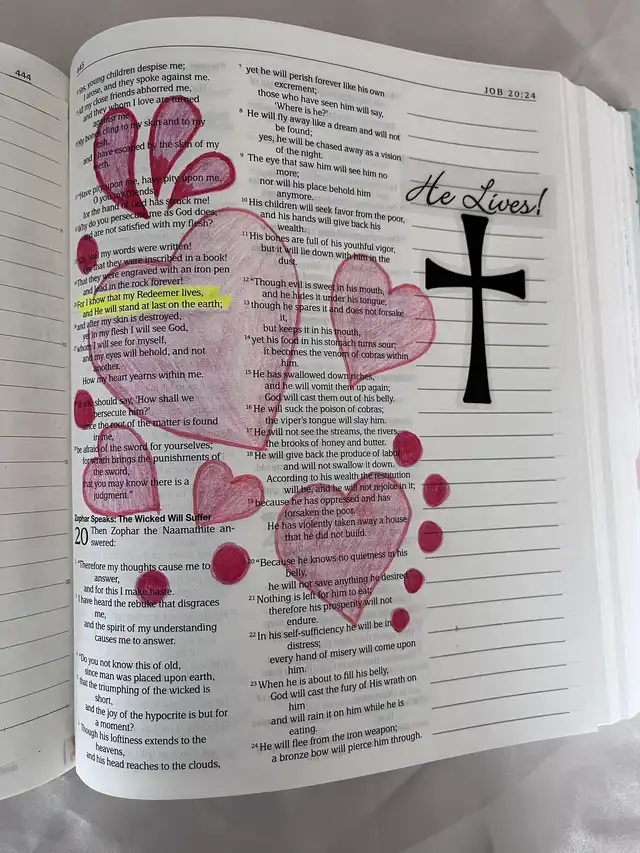 444
445
JOB 20:24
Yes, young children despise me;
I arose, and they spoke against me.
All my close friends abhorred me,
and they whom I love are turned
against me.
My bone clings to my skin and to my
flesh,
and I have escaped by the skin of my
teeth.
"Have pity upon me, have pity upon me,
O you my friends,
for the hand of God has struck me!
Why do you persecute me as God does,
and are not satisfied with my flesh?
"Oh, that my words were written!
Oh, that they were inscribed in a book!
That they were engraved with an iron pen
and lead in the rock forever!
For I know that my Redeemer lives,
and He will stand at last on the earth;
and after my skin is destroyed,
yet in my flesh I will see God,
whom I will see for myself,
and my eyes will behold, and not
another.
How my heart yearns within me.
"If you should say, 'How shall we
persecute him?'
since the root of the matter is found
in me,
be afraid of the sword for yourselves;
for wrath brings the punishments of
the sword,
that you may know there is a
judgment."
Zophar Speaks: The Wicked Will Suffer
20 Then Zophar the Naamathite an-
swered:
"Therefore my thoughts cause me to
answer,
and for this I make haste.
I have heard the rebuke that disgraces
me,
and the spirit of my understanding
causes me to answer.
"Do you not know this of old,
since man was placed upon earth,
that the triumphing of the wicked is
short,
and the joy of the hypocrite is but for
a moment?
Though his loftiness extends to the
heavens,
and his head reaches to the clouds,
7 yet he will perish forever like his own
excrement;
those who have seen him will say,
'Where is he?'
8 He will fly away like a dream and will not
be found;
yes, he will be chased away as a vision
of the night.
9 The eye that saw him will see him no
more;
nor will his place behold him
anymore.
10 His children will seek favor from the poor,
and his hands will give back his
wealth.
11 His bones are full of his youthful vigor,
but it will lie down with him in the
dust.
12 "Though evil is sweet in his mouth,
and he hides it under his tongue,
13 though he spares it and does not forsake
it,
but keeps it in his mouth,
14 yet his food in his stomach turns sour;
it becomes the venom of cobras within
him.
15 He has swallowed down riches,
and he will vomit them up again;
God will cast them out of his belly.
16 He will suck the poison of cobras;
the viper's tongue will slay him.
17 He will not see the streams, the rivers,
the brooks of honey and butter.
18 He will give back the produce of labor
and will not swallow it down.
According to his wealth the restitution
will be, and he will not rejoice in it;
19 because he has oppressed and has
forsaken the poor.
He has violently taken away a house
that he did not build.
20 "Because he knows no quietness in his
belly,
he will not save anything he desired.
21 Nothing is left for him to eat;
therefore his prosperity will not
endure.
22 In his self-sufficiency he will be in
distress;
every hand of misery will come upon
him.
23 When he is about to fill his belly,
God will cast the fury of His wrath on
him
and will rain it on him while he is
eating.
24 He will flee from the iron weapon;
a bronze bow will pierce him through.
He Lives!